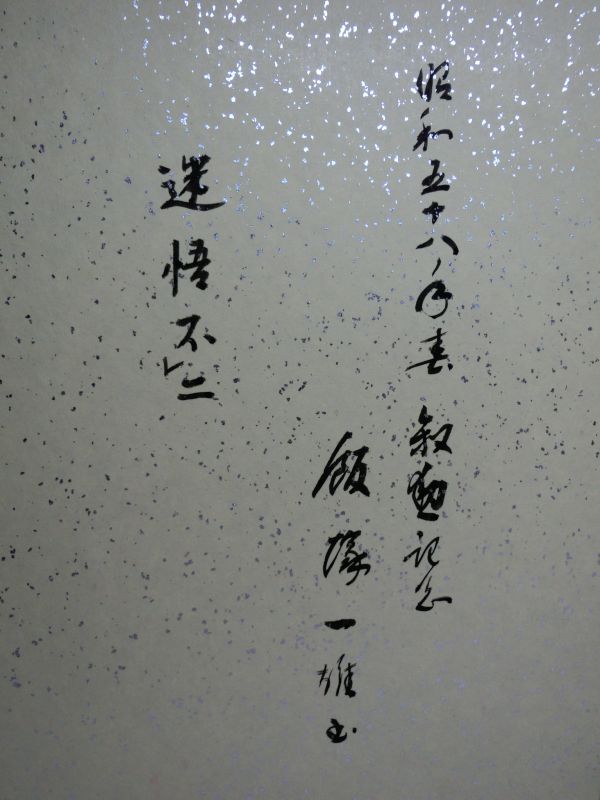 昭和五十八年春 叙勲記念
飯塚一雄書
迷悟不二